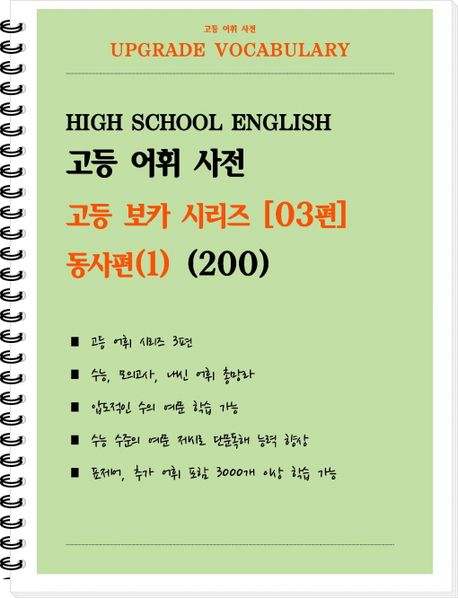 고등 어휘 사전
UPGRADE VOCABULARY
HIGH SCHOOL ENGLISH
고등 어휘 사전
고등 보카 시리즈 [03편]
동사편(1) (200)
■ 고등 어휘 시리즈 3편
■ 수능, 모의고사, 내신 어휘 총망라
■ 압도적인 수의 예문 학습 가능
■ 수능 수준의 예문 제시로 단문독해 능력 향상
■ 표제어, 추가 어휘 포함 3000개 이상 학습 가능